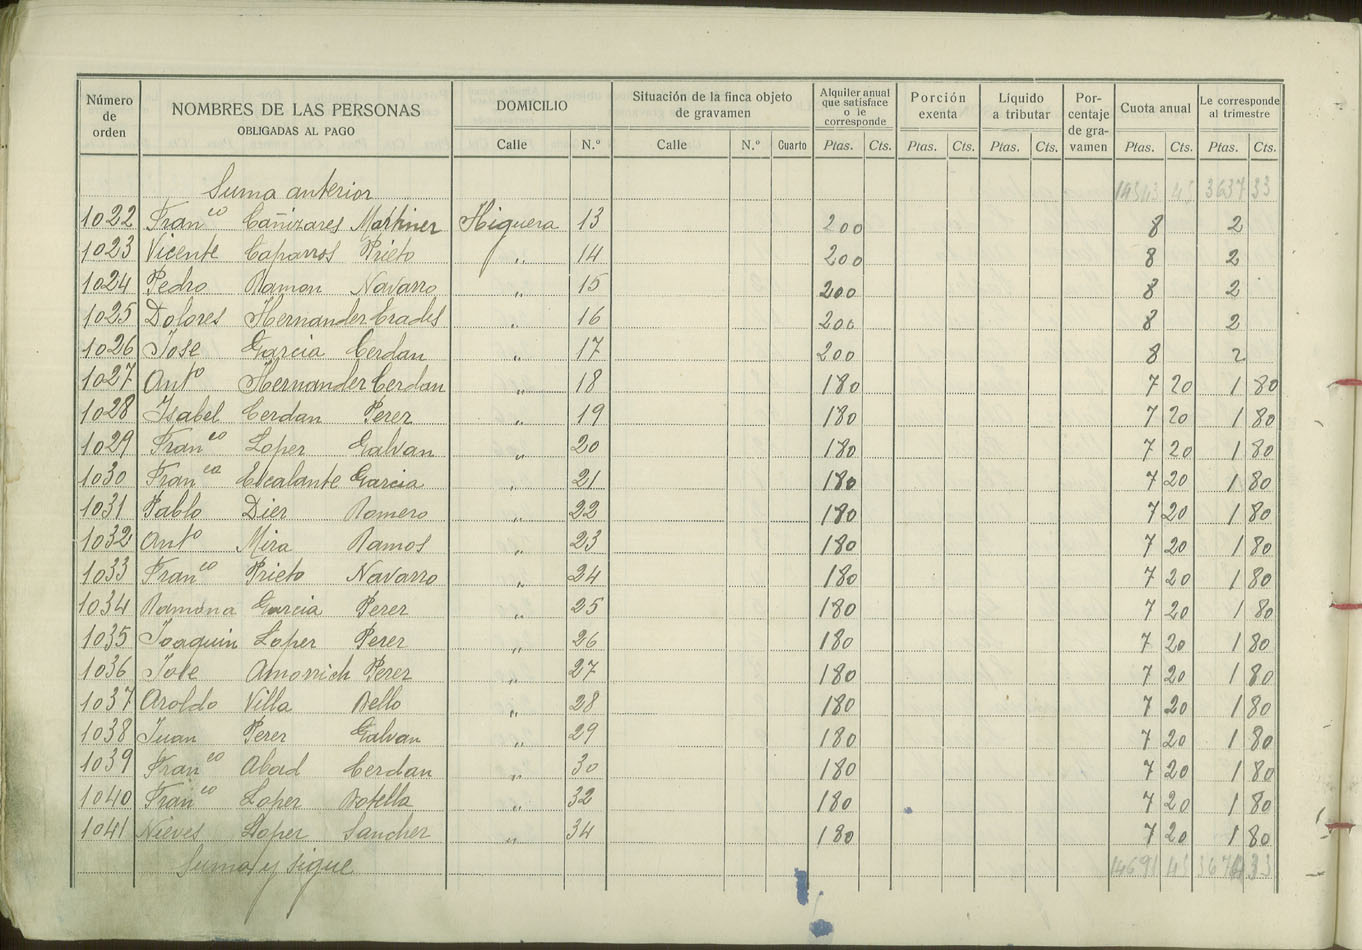 Número de orden NOMBRES DE LAS PERSONAS OBLIGADAS AL PAGO DOMICILIO Situación de la finca objeto de gravamen Alquiler anual que satisface o le corresponde Porción exenta Líquido a tributar Por-centaje de gra-vamen Cuota anual Le corresponde al trimestre
Calle N.º Calle N.º Cuarto Ptas. Cts. Ptas. Cts. Ptas. Cts. Ptas. Cts. Ptas. Cts.
Suma anterior 14543 45 3637 33
1022 Franco Cañizares Martiner Higuera 13 200 8 2
1023 Vicente Caparros Prieto " 14 200 8 2
1024 Pedro Ramon Navarro " 15 200 8 2
1025 Dolores Hernander Crades " 16 200 8 2
1026 Jose Garcia Cerdan " 17 200 8 2
1027 Anto Hernander Cerdan " 18 180 7 20 1 80
1028 Isabel Cerdan Perer " 19 180 7 20 1 80
1029 Franco Loper Galvan " 20 180 7 20 1 80
1030 Franca Escalante Garcia " 21 180 7 20 1 80
1031 Pablo Dier Romero " 22 180 7 20 1 80
1032 Anto Mira Ramos " 23 180 7 20 1 80
1033 Franco Prieto Navarro " 24 180 7 20 1 80
1034 Ramona Garcia Perer " 25 180 7 20 1 80
1035 Joaquin Loper Perer " 26 180 7 20 1 80
1036 Jose Amorrich Perer " 27 180 7 20 1 80
1037 Aroldo Villa Bello " 28 180 7 20 1 80
1038 Juan Perer Galvan " 29 180 7 20 1 80
1039 Franco Abad Cerdan " 30 180 7 20 1 80
1040 Franco Loper Botella " 32 180 7 20 1 80
1041 Nieves Loper Sancher " 34 180 7 20 1 80
Suma y sigue 14691 45 33